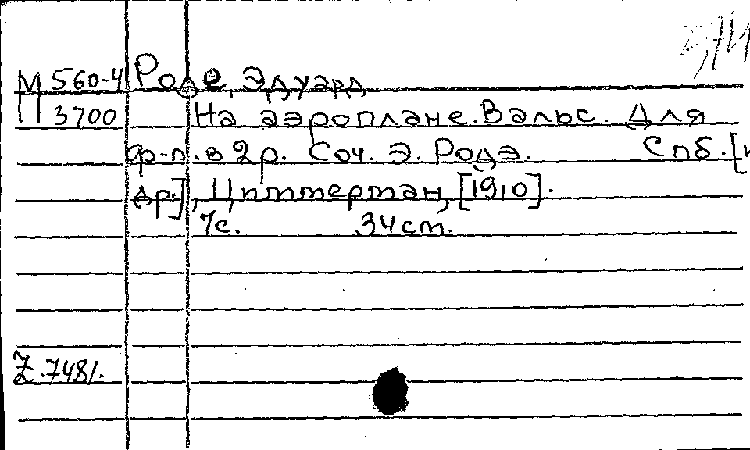 М 560-4 Роде, Эдуард
П 3700 На аэроплане. Вальс. Для
ф-п. в 2 р. Соч. Э. Родэ. Спб. [и
др.], Циммерман, [1910].
7с. 34 cm.
Z.7481.